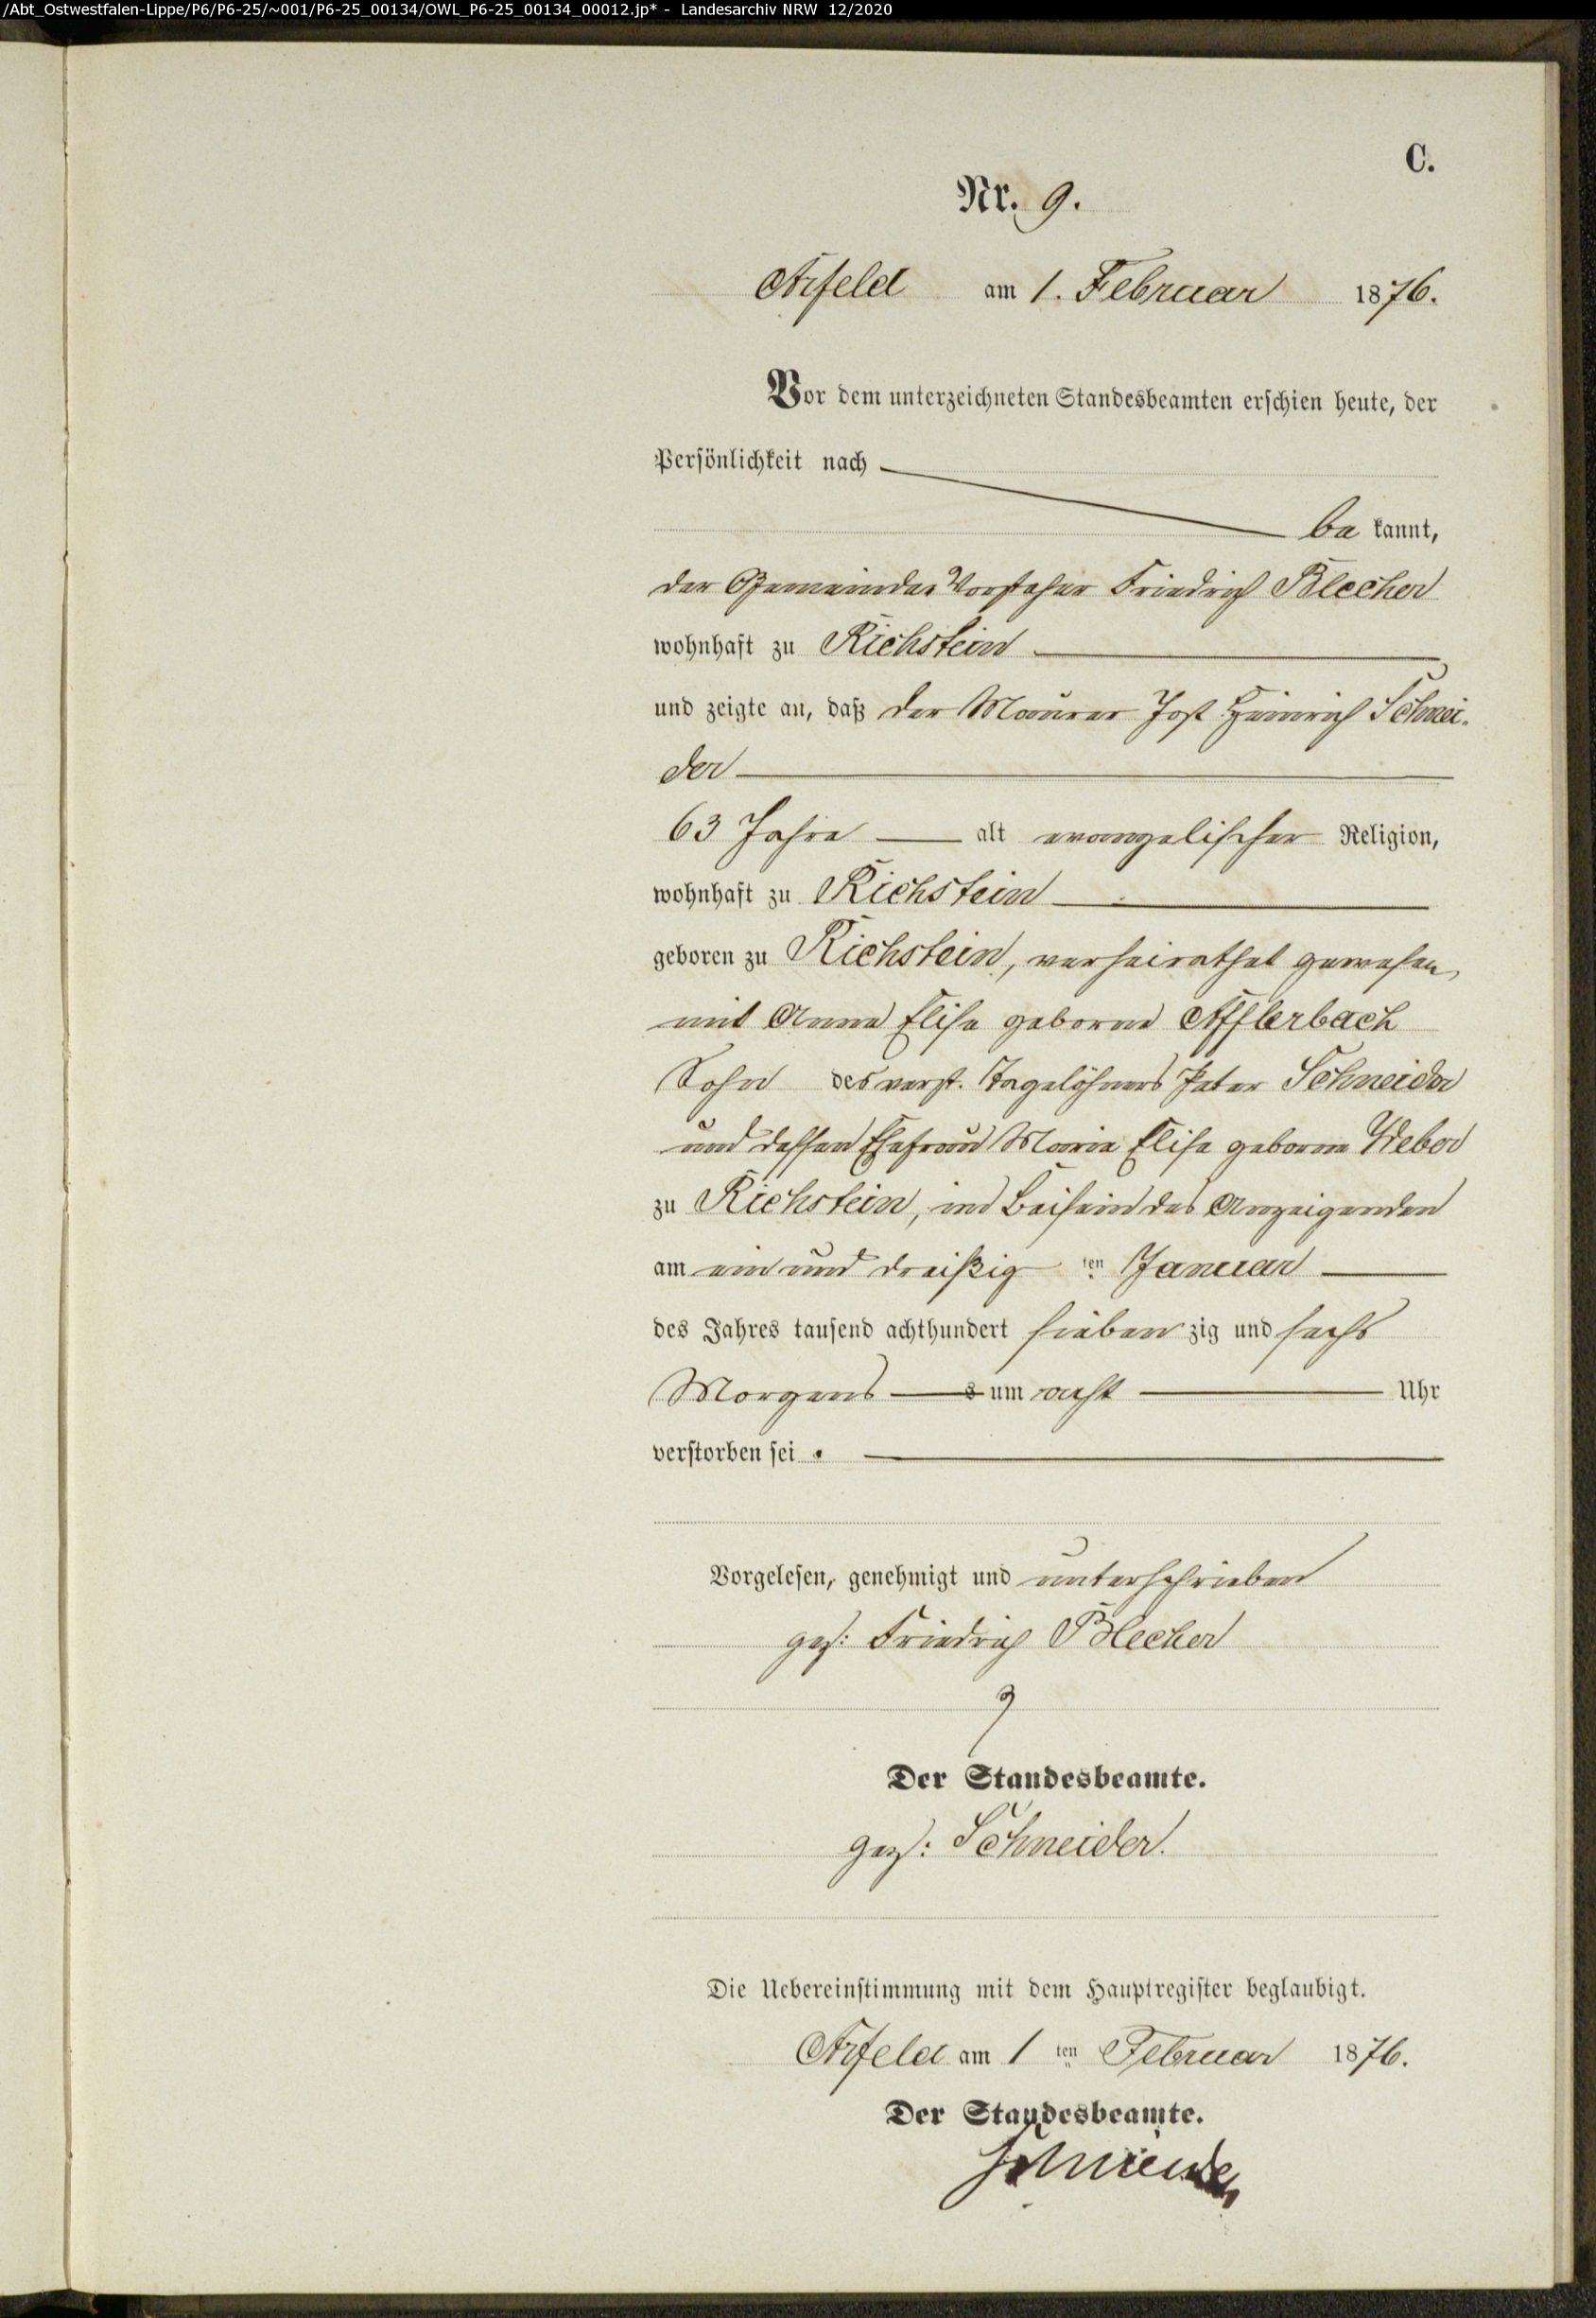 /Abt_Ostwestfalen-Lippe/P6/P6-25/~001/P6-25_00134/OWL_P6-25_00134_00012.jp* - Landesarchiv NRW 12/2020
C.
Nr. 9.
Arfeld am 1. Februar 1876.
Vor dem unterzeichneten Standesbeamten erschien heute, der
Persönlichkeit nach
be kannt,
der Gemeinde-Vorsteher Friedrich Blecher
wohnhaft zu Richstein
und zeigte an, daß der Maurer Jost Heinrich Schnei-
der
63 Jahre alt evangelischer Religion,
wohnhaft zu Richstein
geboren zu Richstein, verheirathet gewesen,
mit Anna Elise geborne Afflerbach
Sohn des verst. Tagelöhners Peter Schneider
und dessen Ehefrau Maria Elise geborne Weber
zu Richstein, im Beisein des Anzeigenden
am ein und dreißig ten Januar
des Jahres tausend achthundert sieben zig und sechs
Morgens um acht Uhr
verstorben sei.
Vorgelesen, genehmigt und unterschrieben
gez: Friedrich Blecher
Der Standesbeamte.
gez: Schneider.
Die Uebereinstimmung mit dem Hauptregister beglaubigt.
Arfeld am 1 ten Februar 1876.
Der Standesbeamte.
Schneider